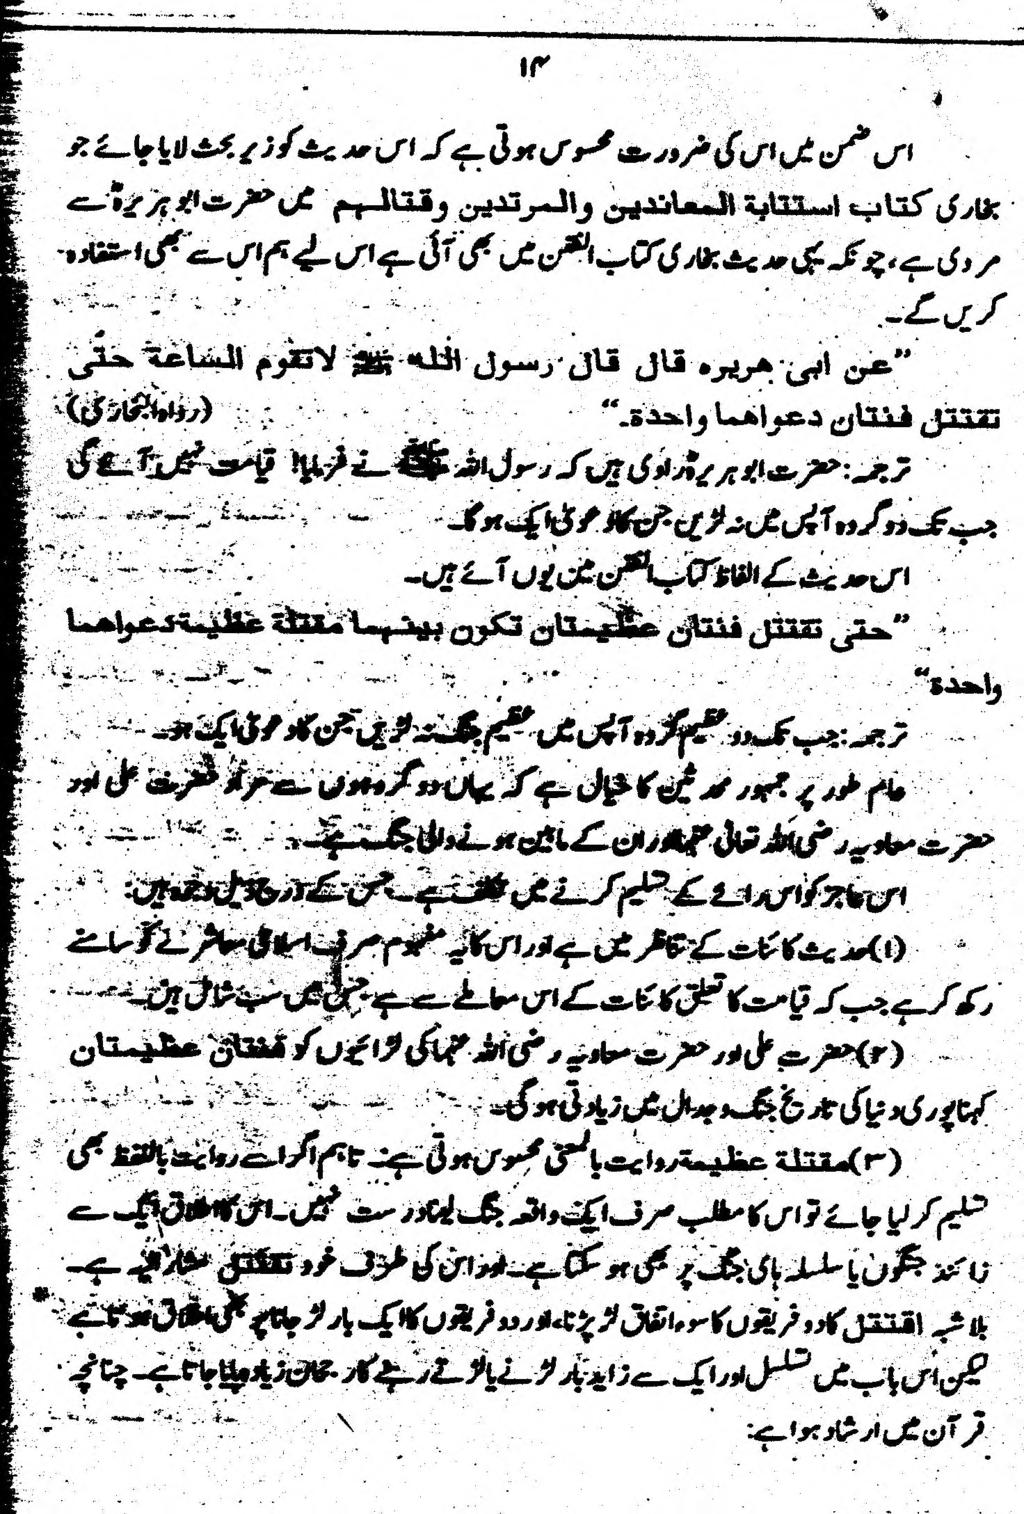 ۱۴
اس ضمن میں اس کی ضرورت محسوس ہوتی ہے کہ اس حدیث کو زیر بحث لایا جائے جو
بخاری کتاب استتابة المعاندین والمرتدین وقتالہم میں حضرت ابو ہریرہؓ سے
مروی ہے، چونکہ یہی حدیث بخاری کتاب الفتن میں بھی آئی ہے اس لیے ہم اس سے بھی استفادہ
کریں گے۔
”عن ابی ھریرہ قال قال رسول اللہ ﷺ لاتقوم الساعة حتّی
تقتتل فئتان دعواھما واحدة۔“ (رواہ البخاری)
ترجمہ: حضرت ابو ہریرہؓ راوی ہیں کہ رسول اللہ ﷺ نے فرمایا! قیامت نہیں آئے گی
جب تک دو گروہ آپس میں نہ لڑیں جن کا دعویٰ ایک ہوگا۔
اس حدیث کے الفاظ کتاب الفتن میں یوں آئے ہیں۔
”حتی تقتتل فئتان عظیمتان تکون بینہما مقتلة عظیمة دعواھما
واحدة“
ترجمہ: جب تک دو عظیم گروہ آپس میں عظیم جنگ نہ لڑیں جن کا دعویٰ ایک ہو۔
عام طور پر جمہور محدثین کا خیال ہے کہ یہاں دو گروہوں سے مراد حضرت علی اور
حضرت معاویہ رضی اللہ تعالیٰ عنہما اور ان کے مابین ہونے والی جنگ ہے۔
اس عاجز کو اس رائے کے تسلیم کرنے میں تکلف ہے۔ جس کے درج ذیل وجوہ ہیں:
(۱) حدیث کائنات کے تناظر میں ہے اور اس کا یہ مفہوم صرف اسلامی معاشرے کو سامنے
رکھ کر ہے جب کہ قیامت کا تعلق کائنات کے اس معاملے سے ہے جس میں سب شامل ہیں۔
(۲) حضرت علی اور حضرت معاویہ رضی اللہ عنہما کی لڑائیوں کو فئتان عظیمتان
کہنا پوری دنیا کی تاریخ جنگ و جدال میں زیادتی ہوگی۔
(۳) مقتلة عظیمة روایت بالمعنی محسوس ہوتی ہے۔ تاہم اگر اسے روایت باللفظ بھی
تسلیم کر لیا جائے تو اس کا مطلب صرف ایک واقعہ جنگ لینا درست نہیں۔ اس کا اطلاق ایک سے
زائد جنگوں یا سلسلہ ہای جنگ پر بھی ہو سکتا ہے۔ اور اس کی طرف خود تقتتل مشار الیہ ہے۔
بلا شبہ اقتتل کا دو فریقوں کا سوء اتفاق لڑ پڑنا، اور دو فریقوں کا ایک بار لڑ جانا پر بھی اطلاق ہوتا ہے
لیکن اس باب میں تسلسل اور ایک سے زاید بار لڑنے یا لڑتے رہنے کا رجحان زیادہ پایا جاتا ہے۔ چنانچہ
قرآن میں ارشاد ہوا ہے: